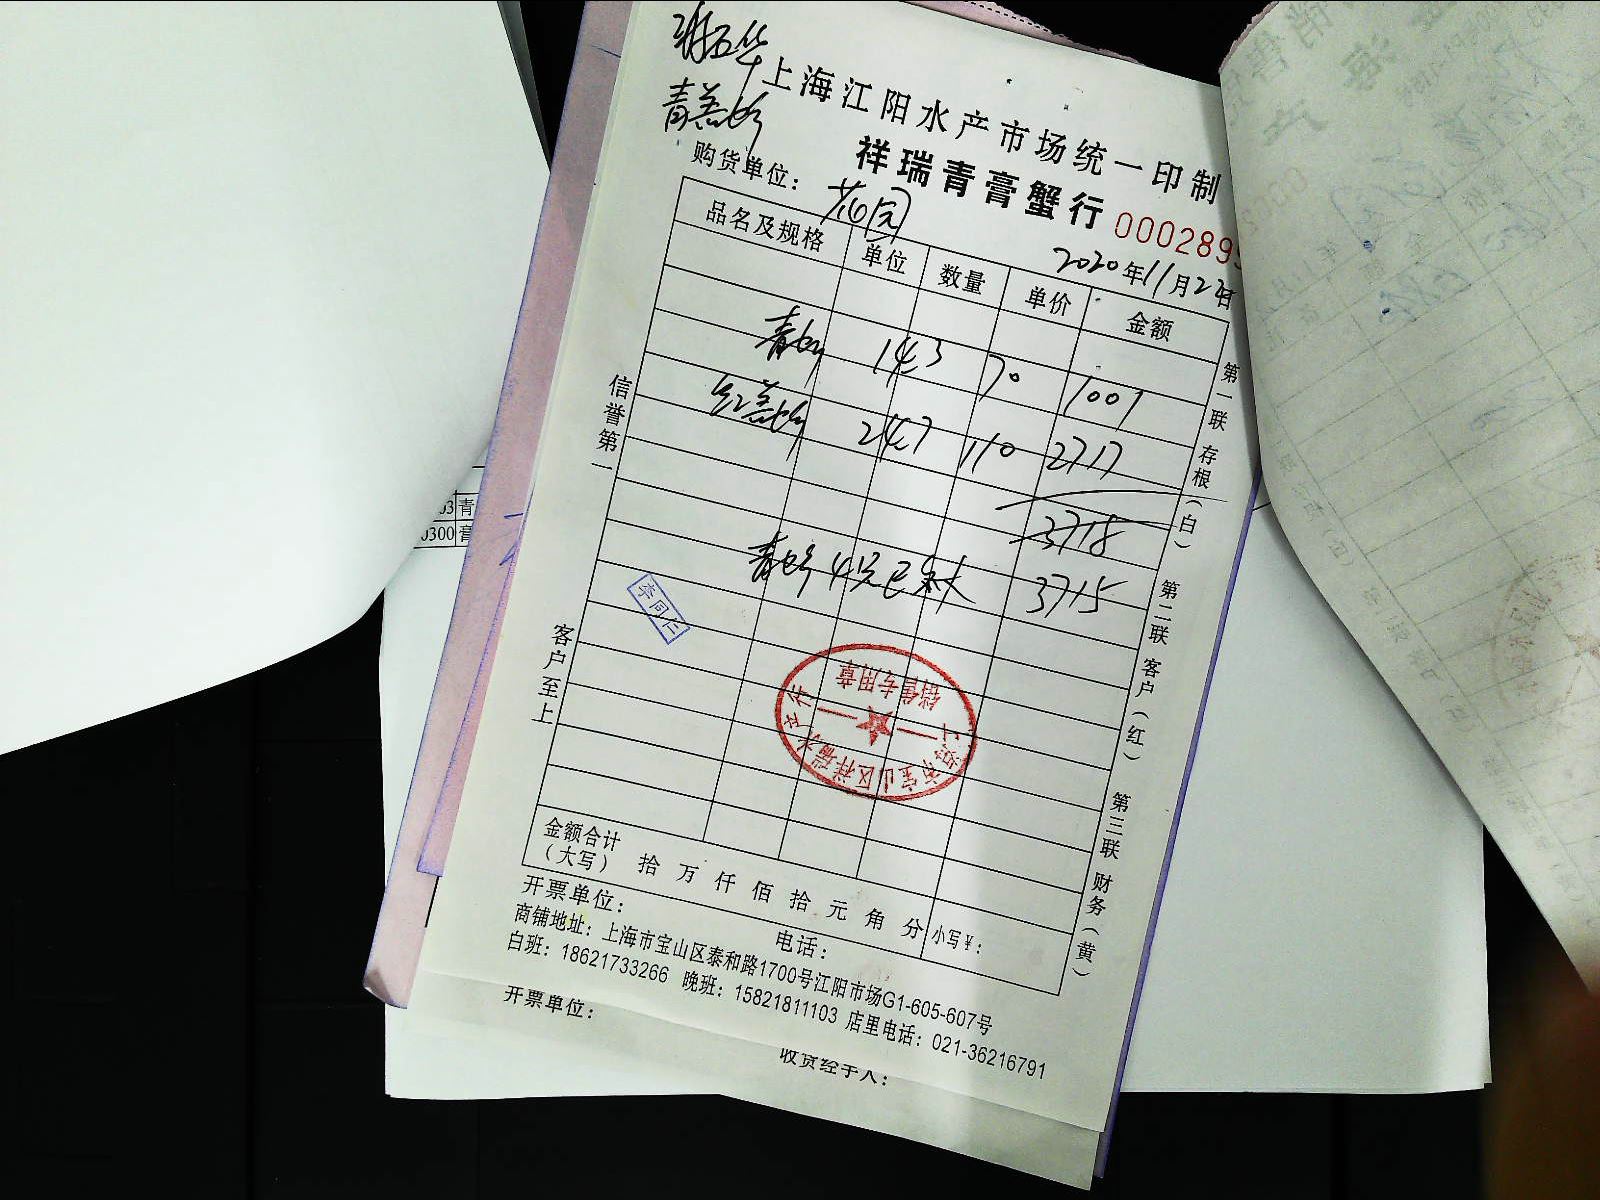 上海江阳水产市场统一印制
祥瑞青膏蟹行
购货单位：花园
000289
2020年11月2 日
品名及规格 单位 数量 单价 金额
青 143 70 1001
红膏 247 110 2717
3718
青 4 已 3715
李同仁
信誉第一
客户至上
销售专用章
上海市宝山区祥瑞水产行
第一联 存根（白） 第二联 客户（红） 第三联 财务（黄）
金额合计
（大写） 拾 万 仟 佰 拾 元 角 分 小写¥：
开票单位： 电话：
商铺地址：上海市宝山区泰和路1700号江阳市场G1-605-607号
白班：18621733266 晚班：15821811103 店里电话：021-36216791
开票单位：
收货经手人：
0300